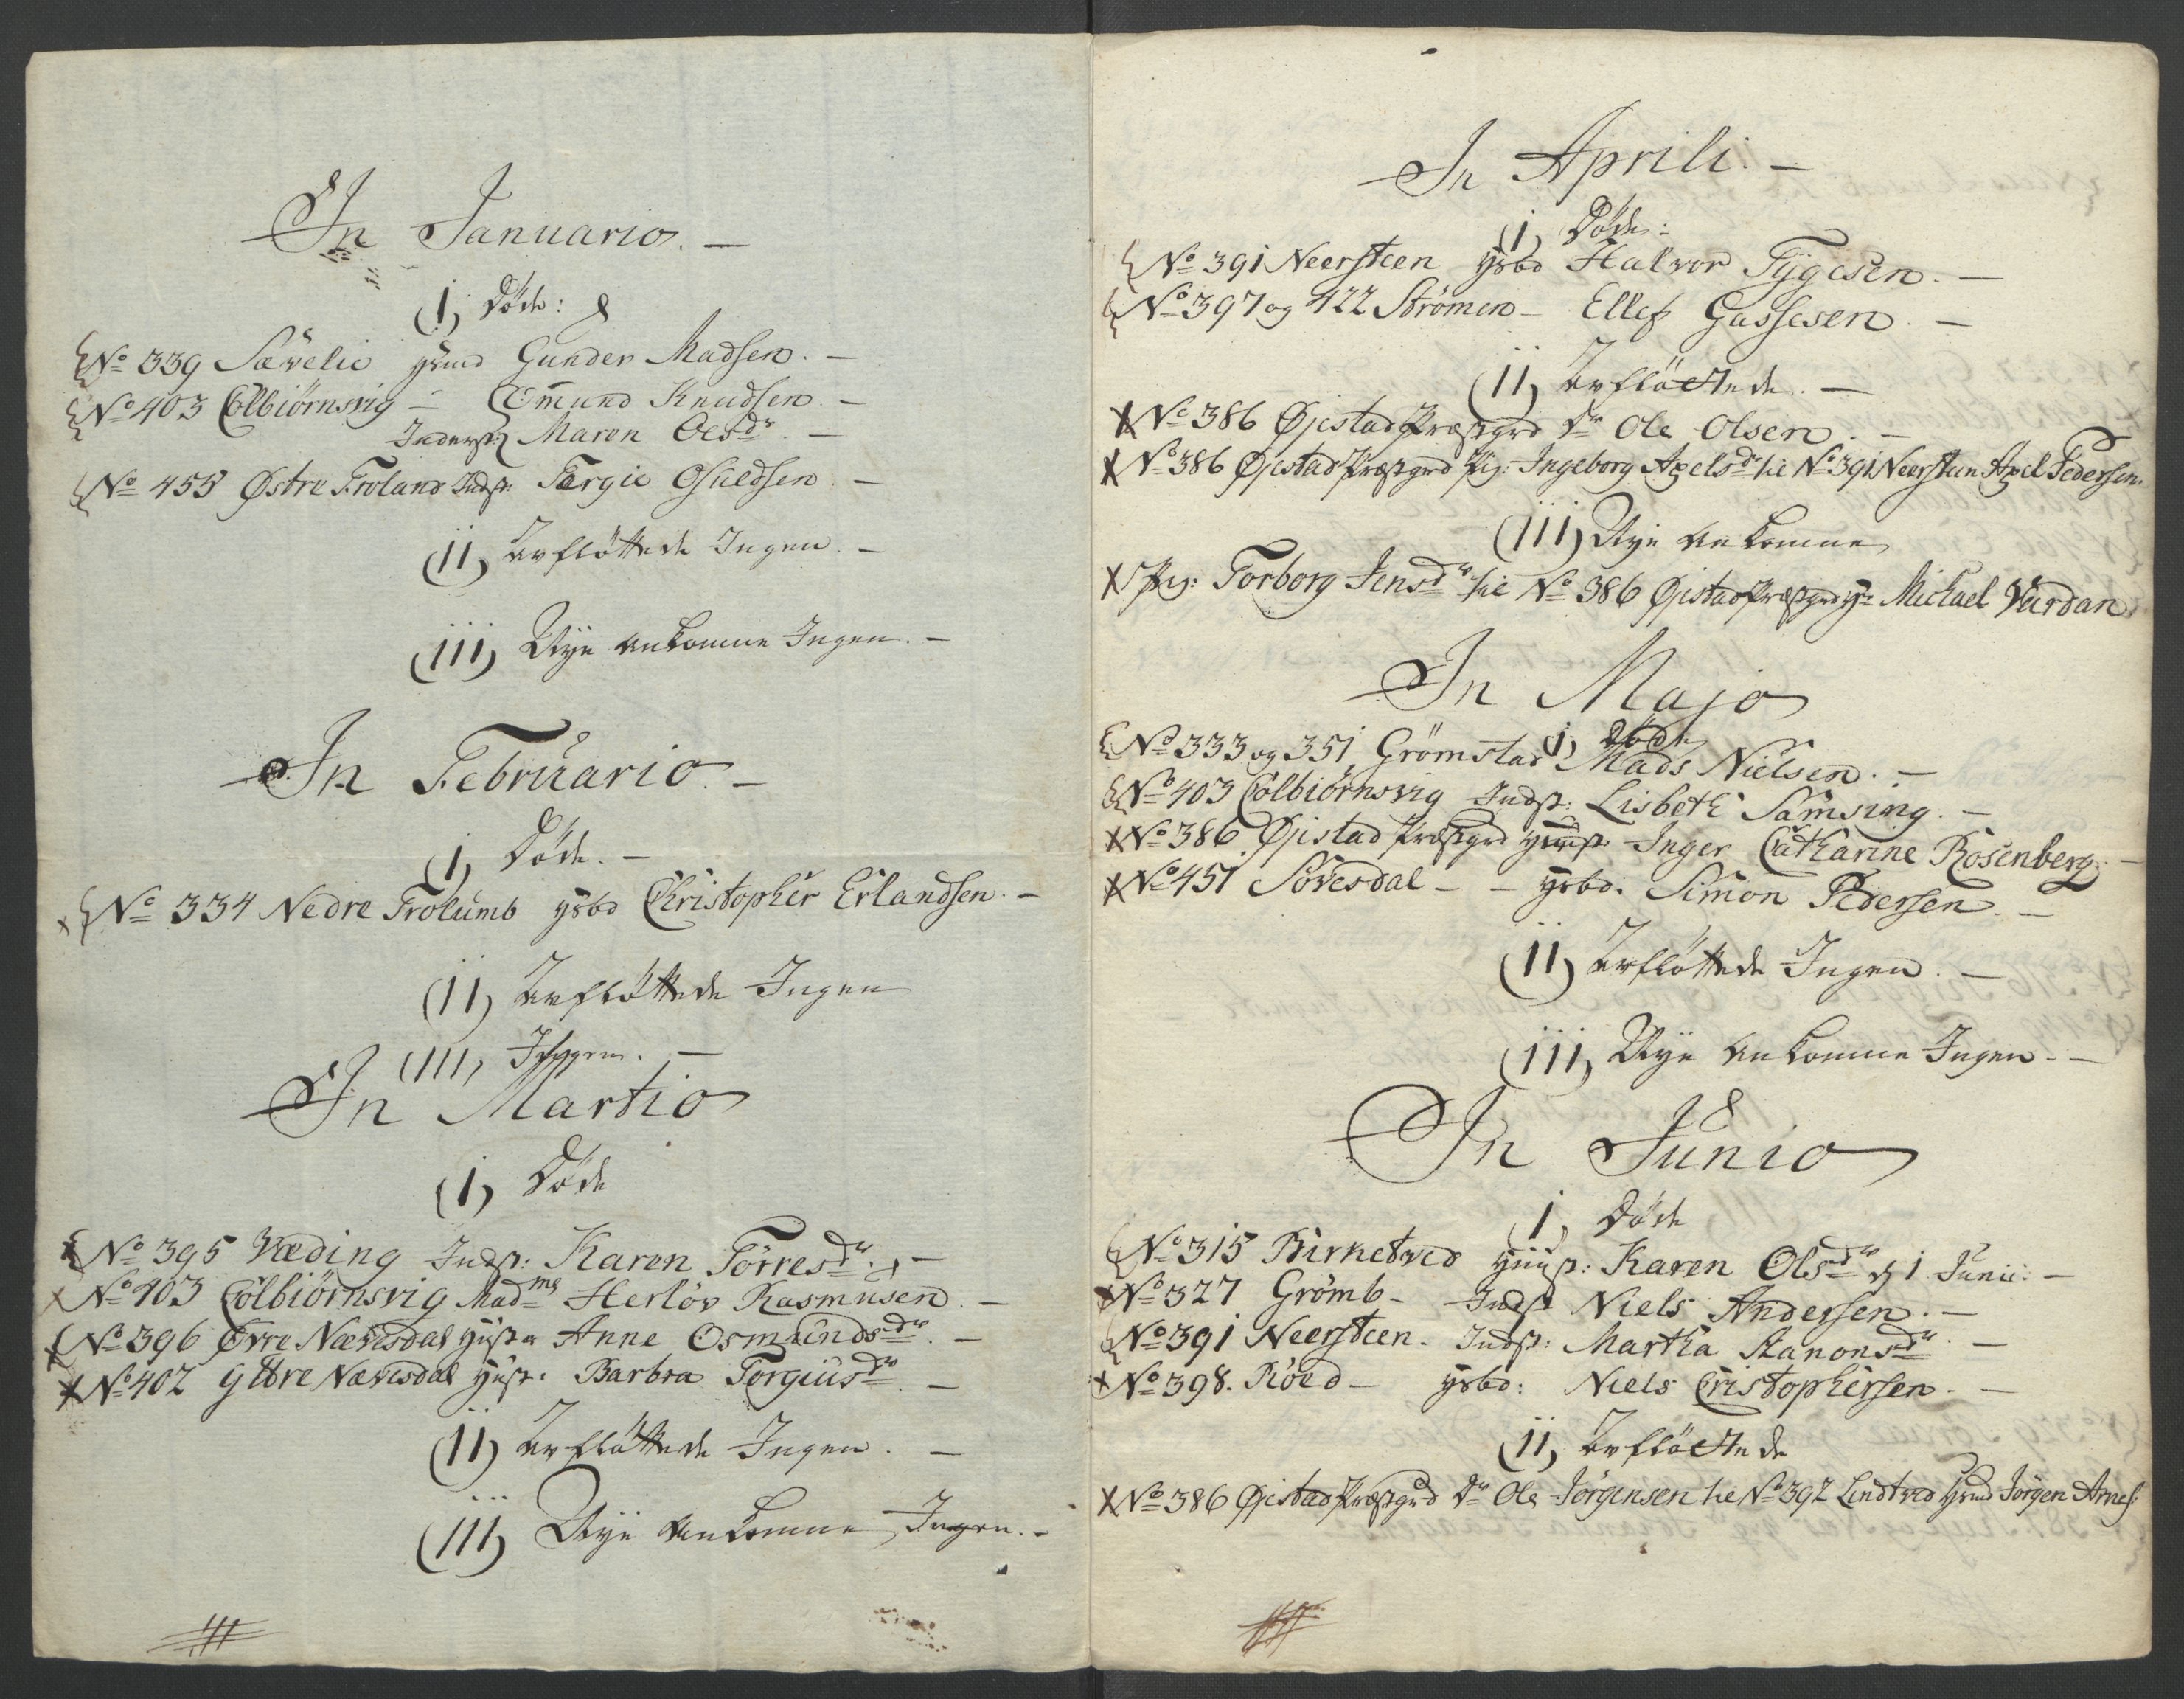 In Januario. —
(I, Døde:
No 339 Sævelie hsmd Gunder Madsen. —
No 403 Colbiörnsvig — Omund Knudsen —
Inderst: Maren Olesdr. —
No 455 Østre Froland Indst: Tergie Osuldsen. —
(II, Avflöttede Ingen. —
(III) Nye ankomne Ingen. —
In Februario. —
(I, Døde. —
No 334 Nedre Frolumb hsbd Christopher Erlandsen. —
(II) Avflöttede Ingen
(III, Ingen. —
In Martio
(I, Døde
No 395 Væding Indst: Karen Törresdr. —
No 403 Colbiörnsvig Madme Herlöv Rasmusen. —
No 396 Øvre Nævesdal hust Anne Osmundsdr. —
No 402 Yttre Nævesdal hust. Barbra Torgiusdr. —
(II) Avflöttede Ingen. —
(III) Nye ankomne Ingen. —
In Aprili. —
(I, Døde:
No 391 Neersteen hsbd Halvor Tygesen. —
No 397 og 422 Strömen — Ellef Gassesen. —
(II, Avflöttede. —
No 386 Øjestad Præstgrd Dr Ole Olsen. —
No 386 Øjestad Præstgrd Pig: Ingeborg Axelsdr til No 391 Neersteen Axel Pedersen.
(III) Nye ankomne
Pig: Torborg Jensdr til No 386 Øjestad Præstgrd Hr Michael Vardan
In Majo
(I, Døde
No 333 og 351, Grömstad Mads Nielsen. —
No 403 Colbiörnsvig Indst: Lisbeth Samsing. —
No 386 Øjestad Præstgrd Inger Catharine Rosenberg. —
No 451 Sövesdal — — hsbd. Simon Pedersen. —
(II) Avflöttede Ingen. —
(III, Nye ankomne Ingen. —
In Junio
I, Døde
No 315 Birketved hust: Karen Olsdr d 1 Junii. —
No 327 Grömb — Indst Niels Andersen. —
No 391 Neersteen. Indst: Martha Aanonsdr. —
No 398. Röed — hsbd: Niels Cristophersen. —
(II, Avflöttede
No 386 Øjestad Præstgrd Dr Ole Jörgensen til No 392 Lindtved hsmd Jörgen Arnes: